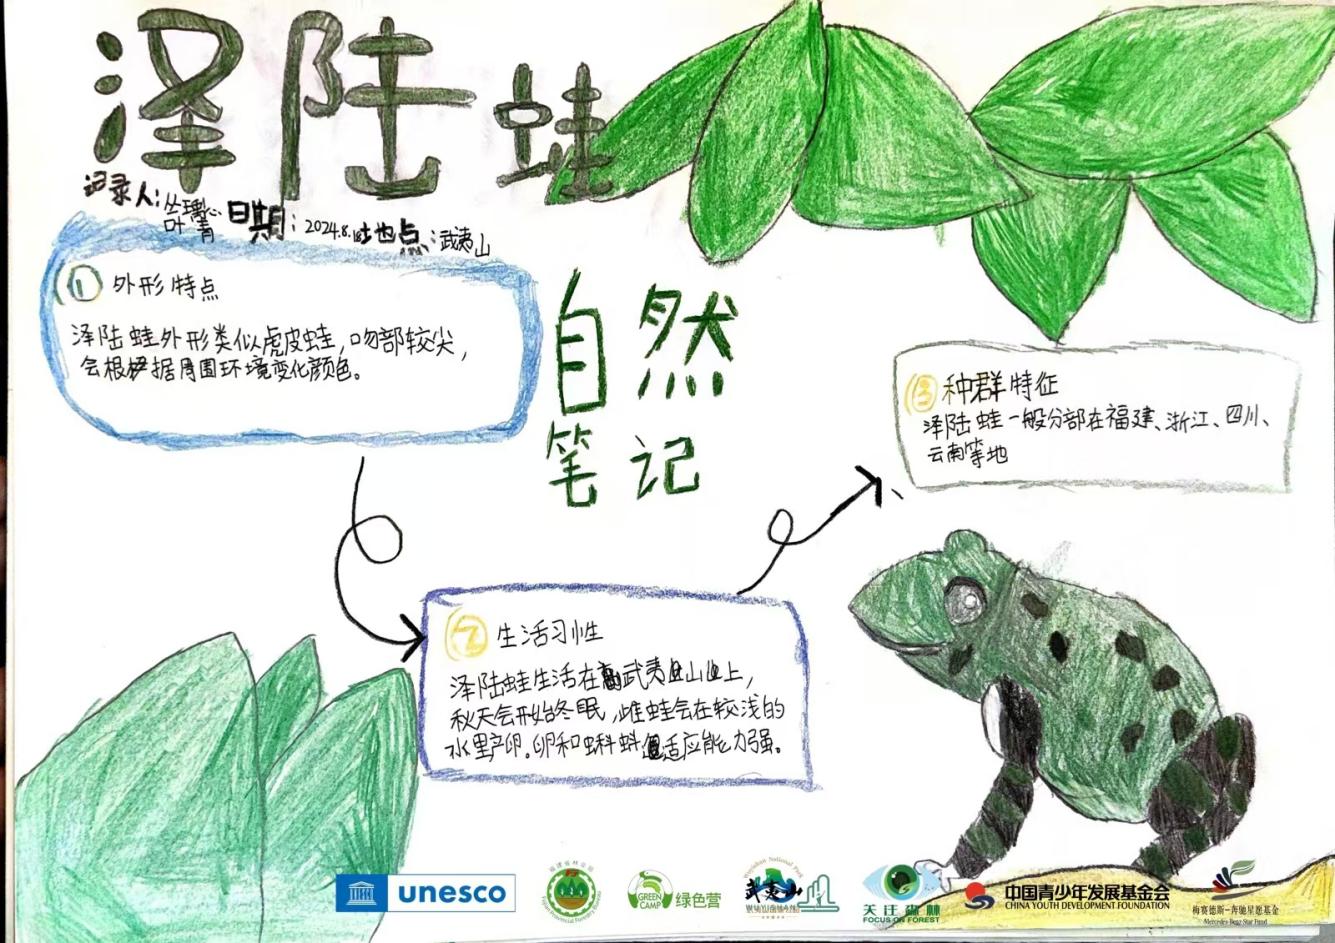 泽陆蛙
记录人：
叶菁
日期：2024.8.
地点：武夷山
① 外形特点
泽陆蛙外形类似虎皮蛙，吻部较尖，
会根据周围环境变化颜色。
自然
笔记
② 生活习性
泽陆蛙生活在武夷山上，
秋天会开始冬眠，雌蛙会在较浅的
水里产卵。卵和蝌蚪适应能力强。
③ 种群特征
泽陆蛙一般分部在福建、浙江、四川、
云南等地
unesco
GREEN CAMP
绿色营
Wuyishan National Park
武夷山
关注森林
FOCUS ON FOREST
中国青少年发展基金会
CHINA YOUTH DEVELOPMENT FOUNDATION
梅赛德斯-奔驰星愿基金
Mercedes-Benz Star Fund